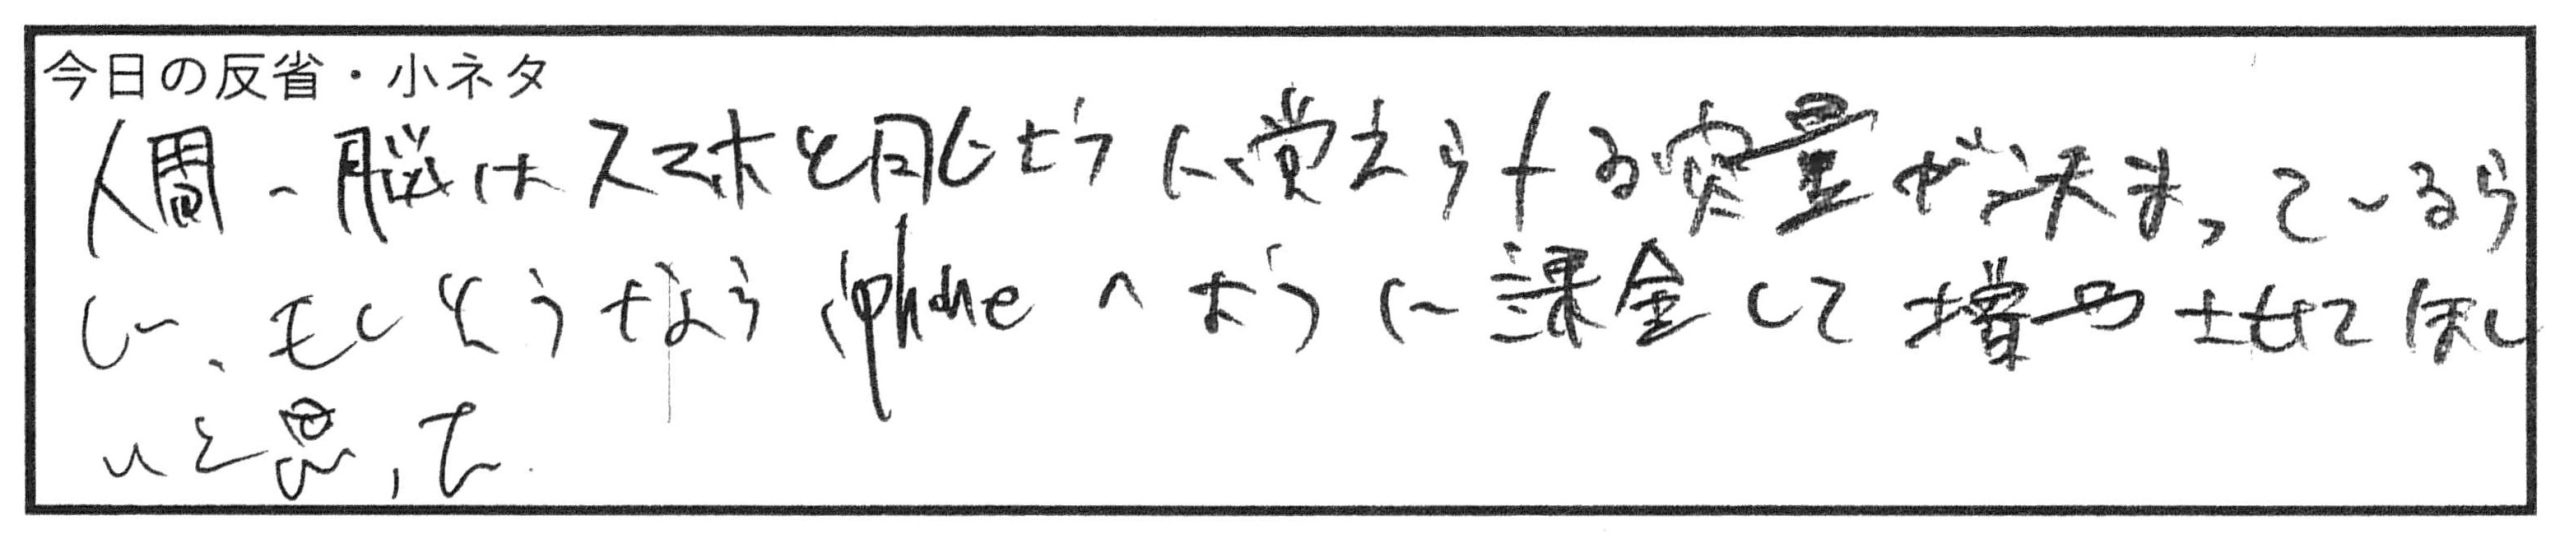 今日の反省・小ネタ
人間の脳はスマホと同じように覚えられる容量が決まっているら
しい、もしそうなら iphone のように課金して増やせて欲し
いと思った.